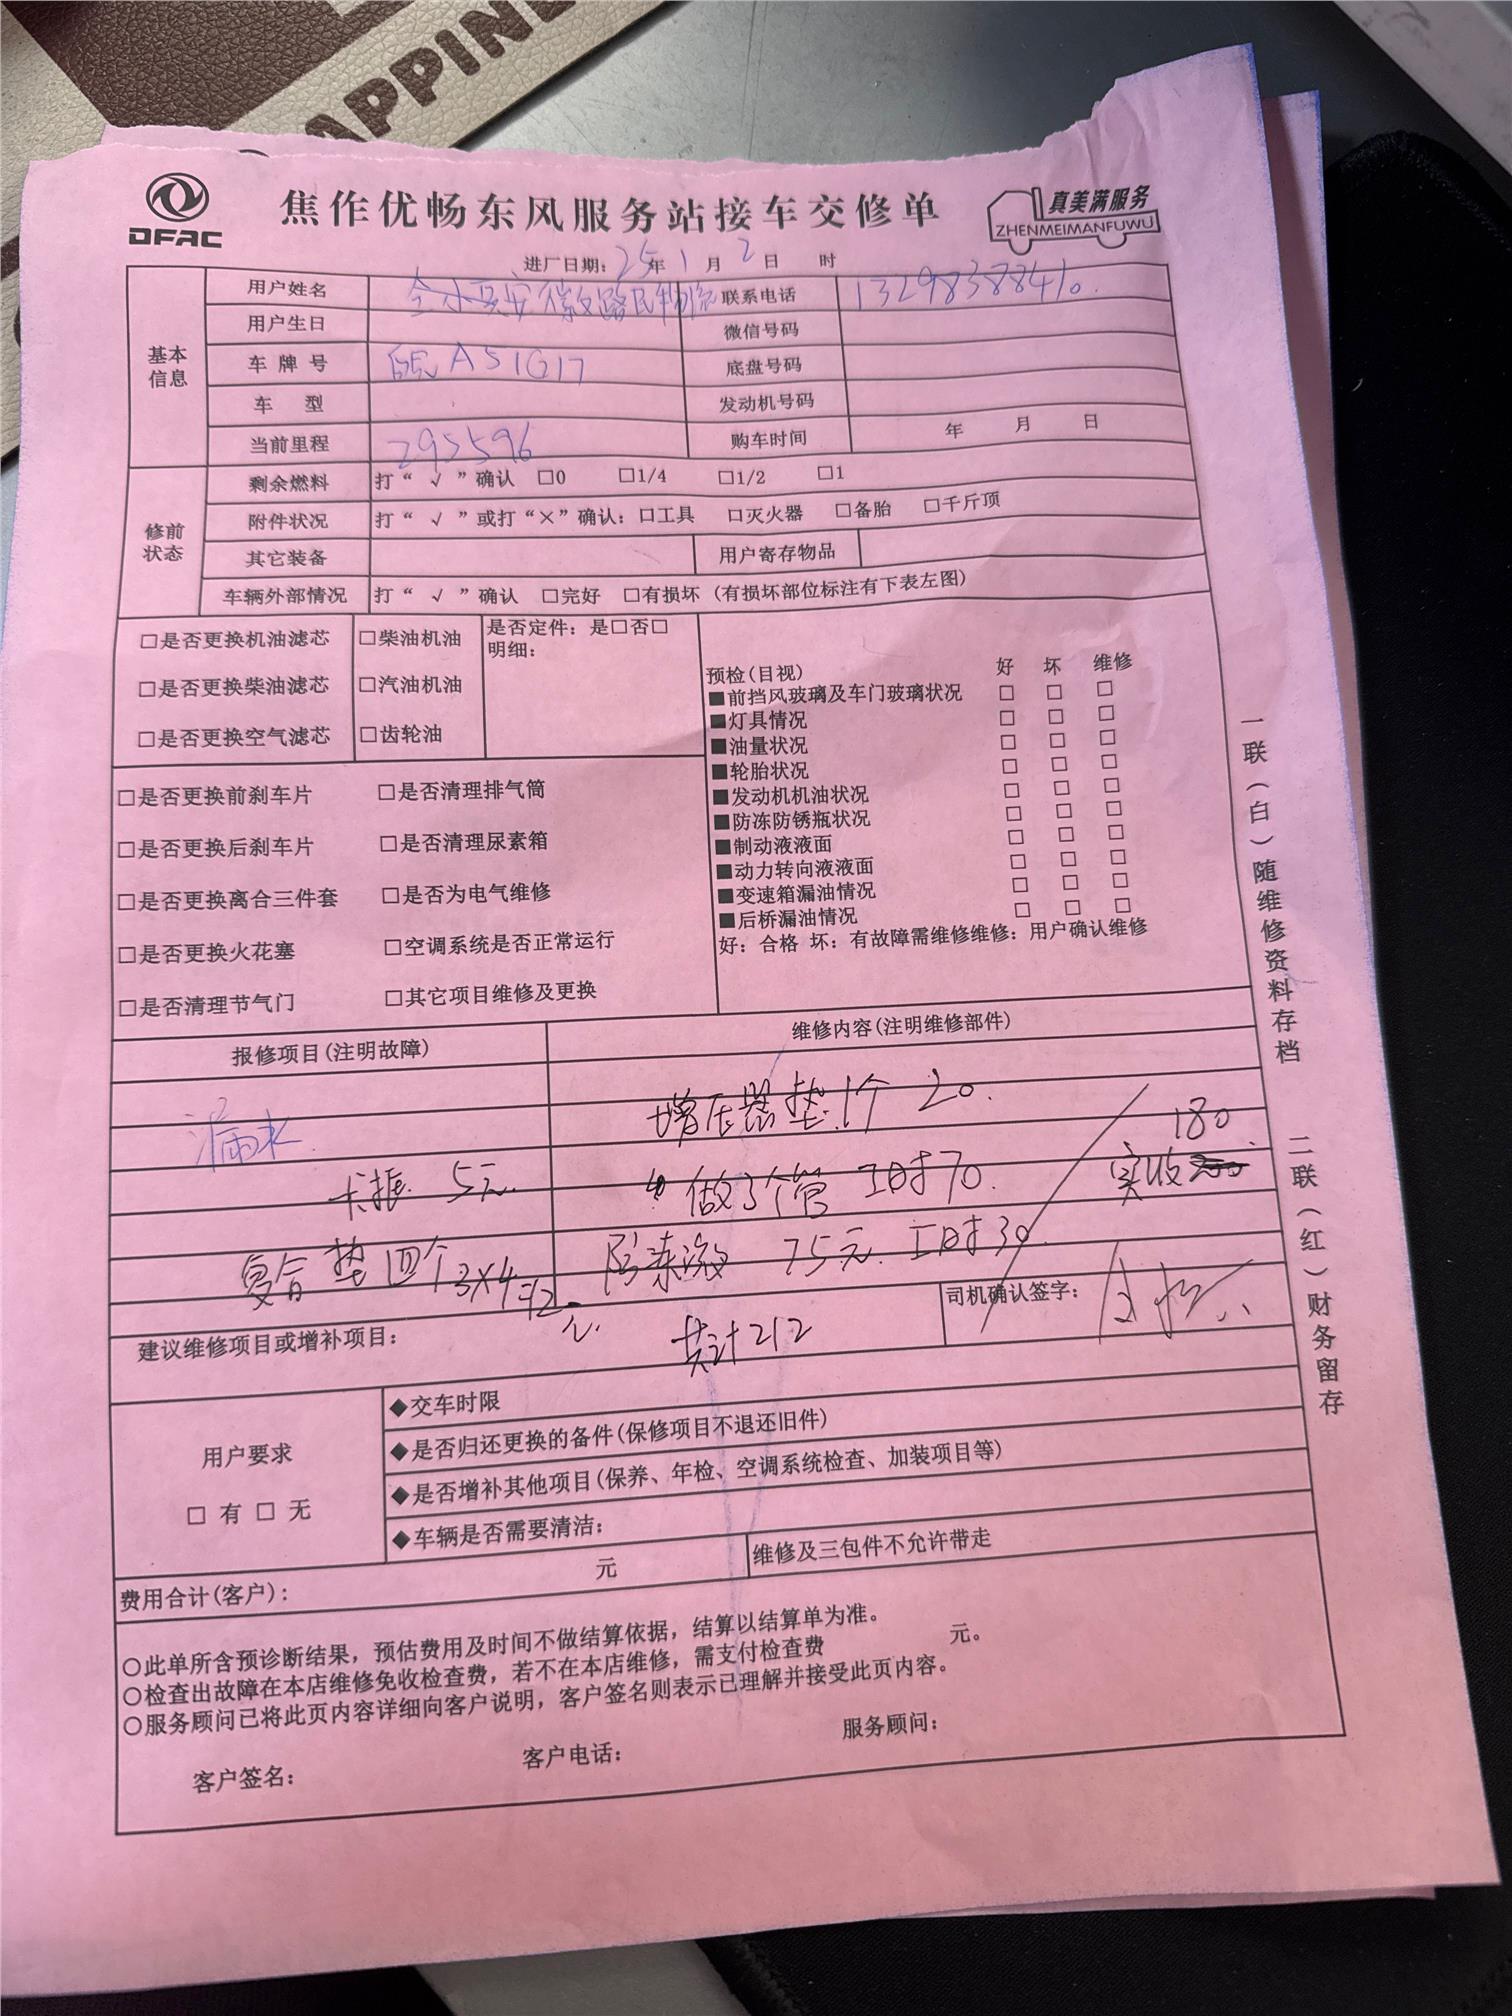 APPINE
DFAC
焦作优畅东风服务站接车交修单
真美满服务
ZHENMEIMANFUWU
进厂日期: 25年 1月 2日 时
基本信息
用户姓名
联系电话 13298388410.
用户生日 微信号码
车牌号 皖A51G17 底盘号码
车 型 发动机号码
当前里程 295596 购车时间 年 月 日
修前状态
剩余燃料 打“√”确认 □0 □1/4 □1/2 □1
附件状况 打“√”或打“×”确认: □工具 □灭火器 □备胎 □千斤顶
其它装备 用户寄存物品
车辆外部情况 打“√”确认 □完好 □有损坏 (有损坏部位标注有下表左图)
□是否更换机油滤芯 □柴油机油 是否定件: 是□否□
明细:
□是否更换柴油滤芯 □汽油机油
□是否更换空气滤芯 □齿轮油
预检(目视) 好 坏 维修
■前挡风玻璃及车门玻璃状况 □ □ □
■灯具情况 □ □ □
■油量状况 □ □ □
■轮胎状况 □ □ □
■发动机机油状况 □ □ □
■防冻防锈瓶状况 □ □ □
■制动液液面 □ □ □
■动力转向液液面 □ □ □
■变速箱漏油情况 □ □ □
■后桥漏油情况 □ □ □
好: 合格 坏: 有故障需维修维修: 用户确认维修
□是否更换前刹车片 □是否清理排气筒
□是否更换后刹车片 □是否清理尿素箱
□是否更换离合三件套 □是否为电气维修
□是否更换火花塞 □空调系统是否正常运行
□是否清理节气门 □其它项目维修及更换
报修项目(注明故障) 维修内容(注明维修部件)
漏水. 增压器垫1个 20.
180
卡振 5元. 做了个管 工时70. 实收
复合垫四个3×4=12元. 75元 工时30.
建议维修项目或增补项目: 共计212
司机确认签字:
用户要求
□ 有 □ 无
◆交车时限
◆是否归还更换的备件(保修项目不退还旧件)
◆是否增补其他项目(保养、年检、空调系统检查、加装项目等)
◆车辆是否需要清洁;
费用合计(客户): 元 维修及三包件不允许带走
○此单所含预诊断结果, 预估费用及时间不做结算依据, 结算以结算单为准。
○检查出故障在本店维修免收检查费, 若不在本店维修, 需支付检查费 元。
○服务顾问已将此页内容详细向客户说明, 客户签名则表示已理解并接受此页内容。
客户签名: 客户电话: 服务顾问:
一联(白)随维修资料存档 二联(红)财务留存